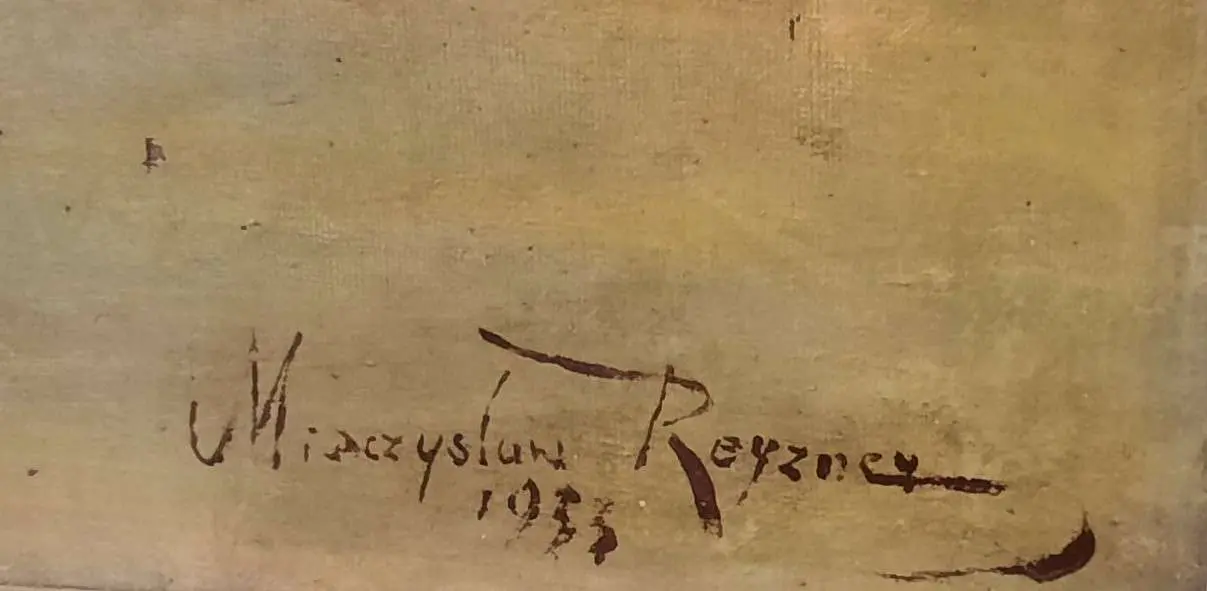 Mieczyslaw Reyzner
1933